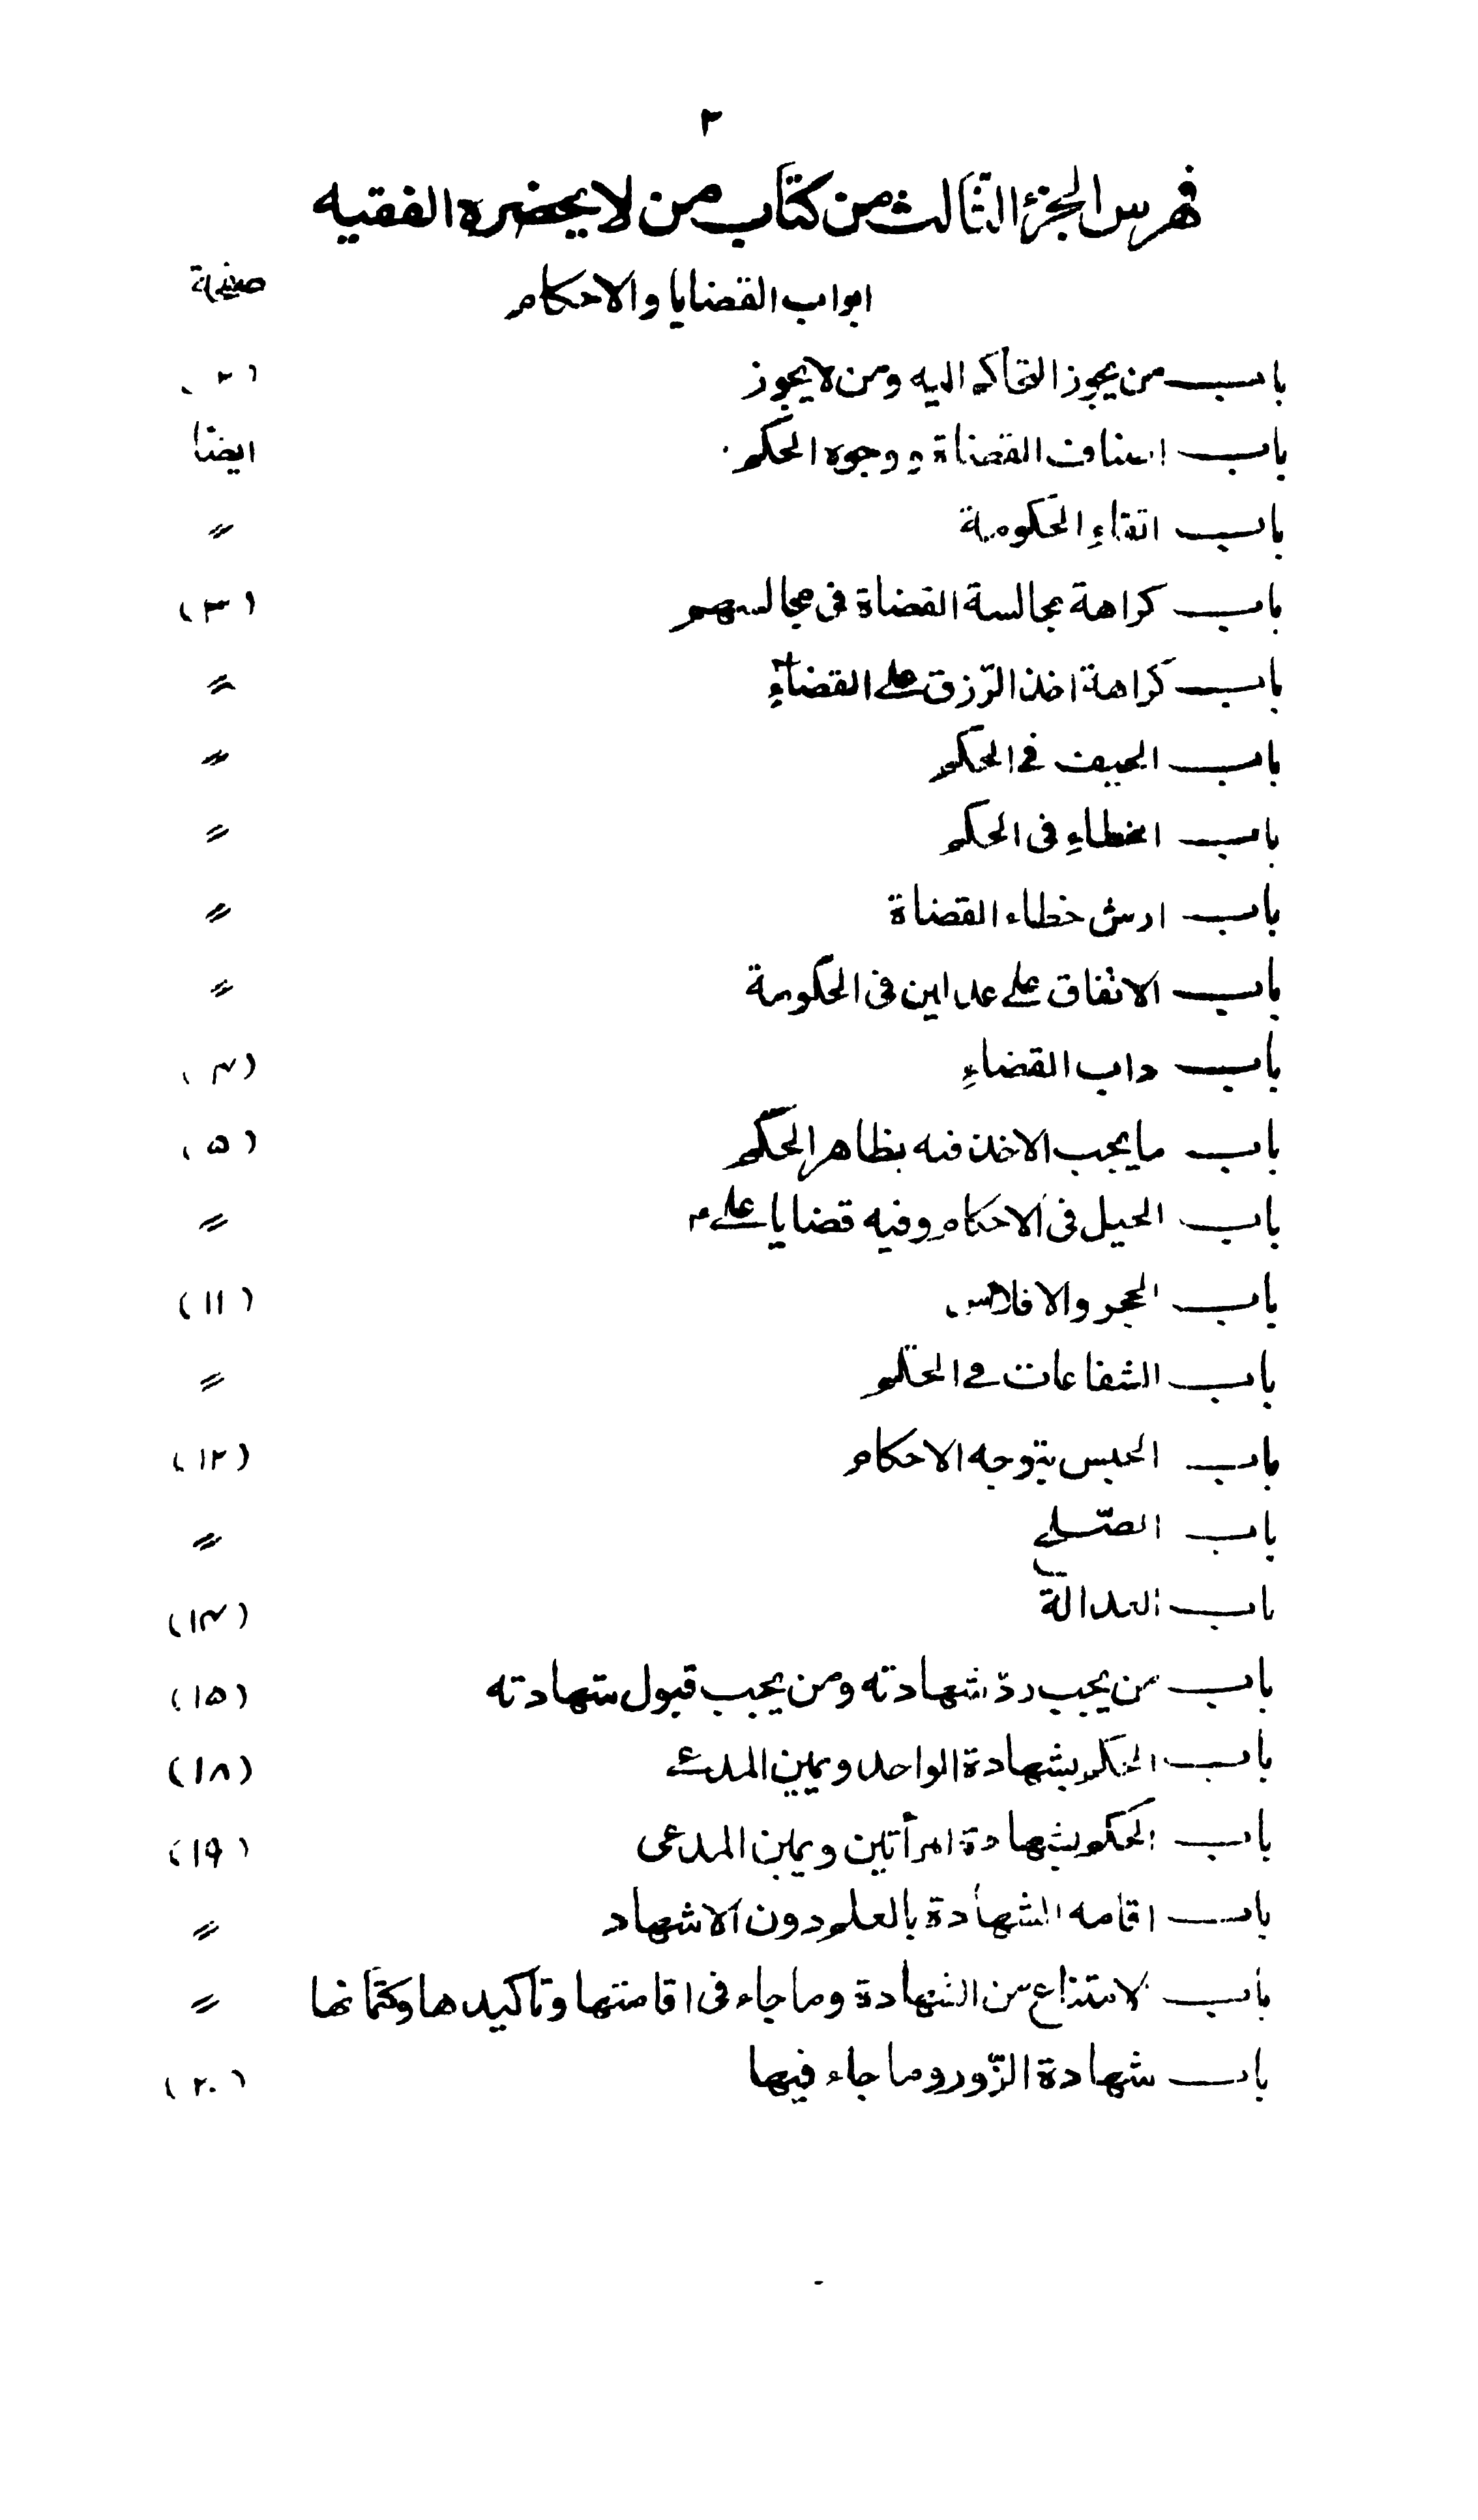 ٢
فهرس الجزء الثالث من كتاب من لا يحضره الفقيه
ابواب القضايا والاحكام صفحة
باب من يجوز التحاكم اليه ومن لا يجوز (٢)
باب اصناف القضاة و وجوه الحكم ايضا
باب اتقاء الحكومة 〃
باب كراهة مجالسة القضاة فى مجالسهم (٣)
باب كراهة اخذ الرّزق على القضاء 〃
باب الحيف فى الحكم 〃
باب الخطاء فى الحكم 〃
باب ارش خطاء القضاة 〃
باب الاتفاق على عدلين فى الحكومة 〃
باب داب القضاء (۴)
باب ما يجب الاخذ فيه بظاهر الحكم (۵)
باب الحيل فى الاحكام وفيه قضايا على ؑ 〃
باب الحجر والافلاس (١١)
باب الشفاعات فى الحكم 〃
باب الحبس بتوجه الاحكام (١٢)
باب الصّلح 〃
باب العدالة (١۴)
باب من يجب ردّ شهادته ومن يجب قبول شهادته (١۵)
باب الحكم بشهادة الواحد ويمين المدعى (١٨)
باب الحكم بشهادة امرأتين ويمين المدعى (١٩)
باب اقامه الشهادة بالعلم دون الاشهاد 〃
باب لامتناع من الشهادة وما جاء فى اقامتها وتاكيدها وكتمانها 〃
باب شهادة الزّور وما جاء فيها (٢٠)